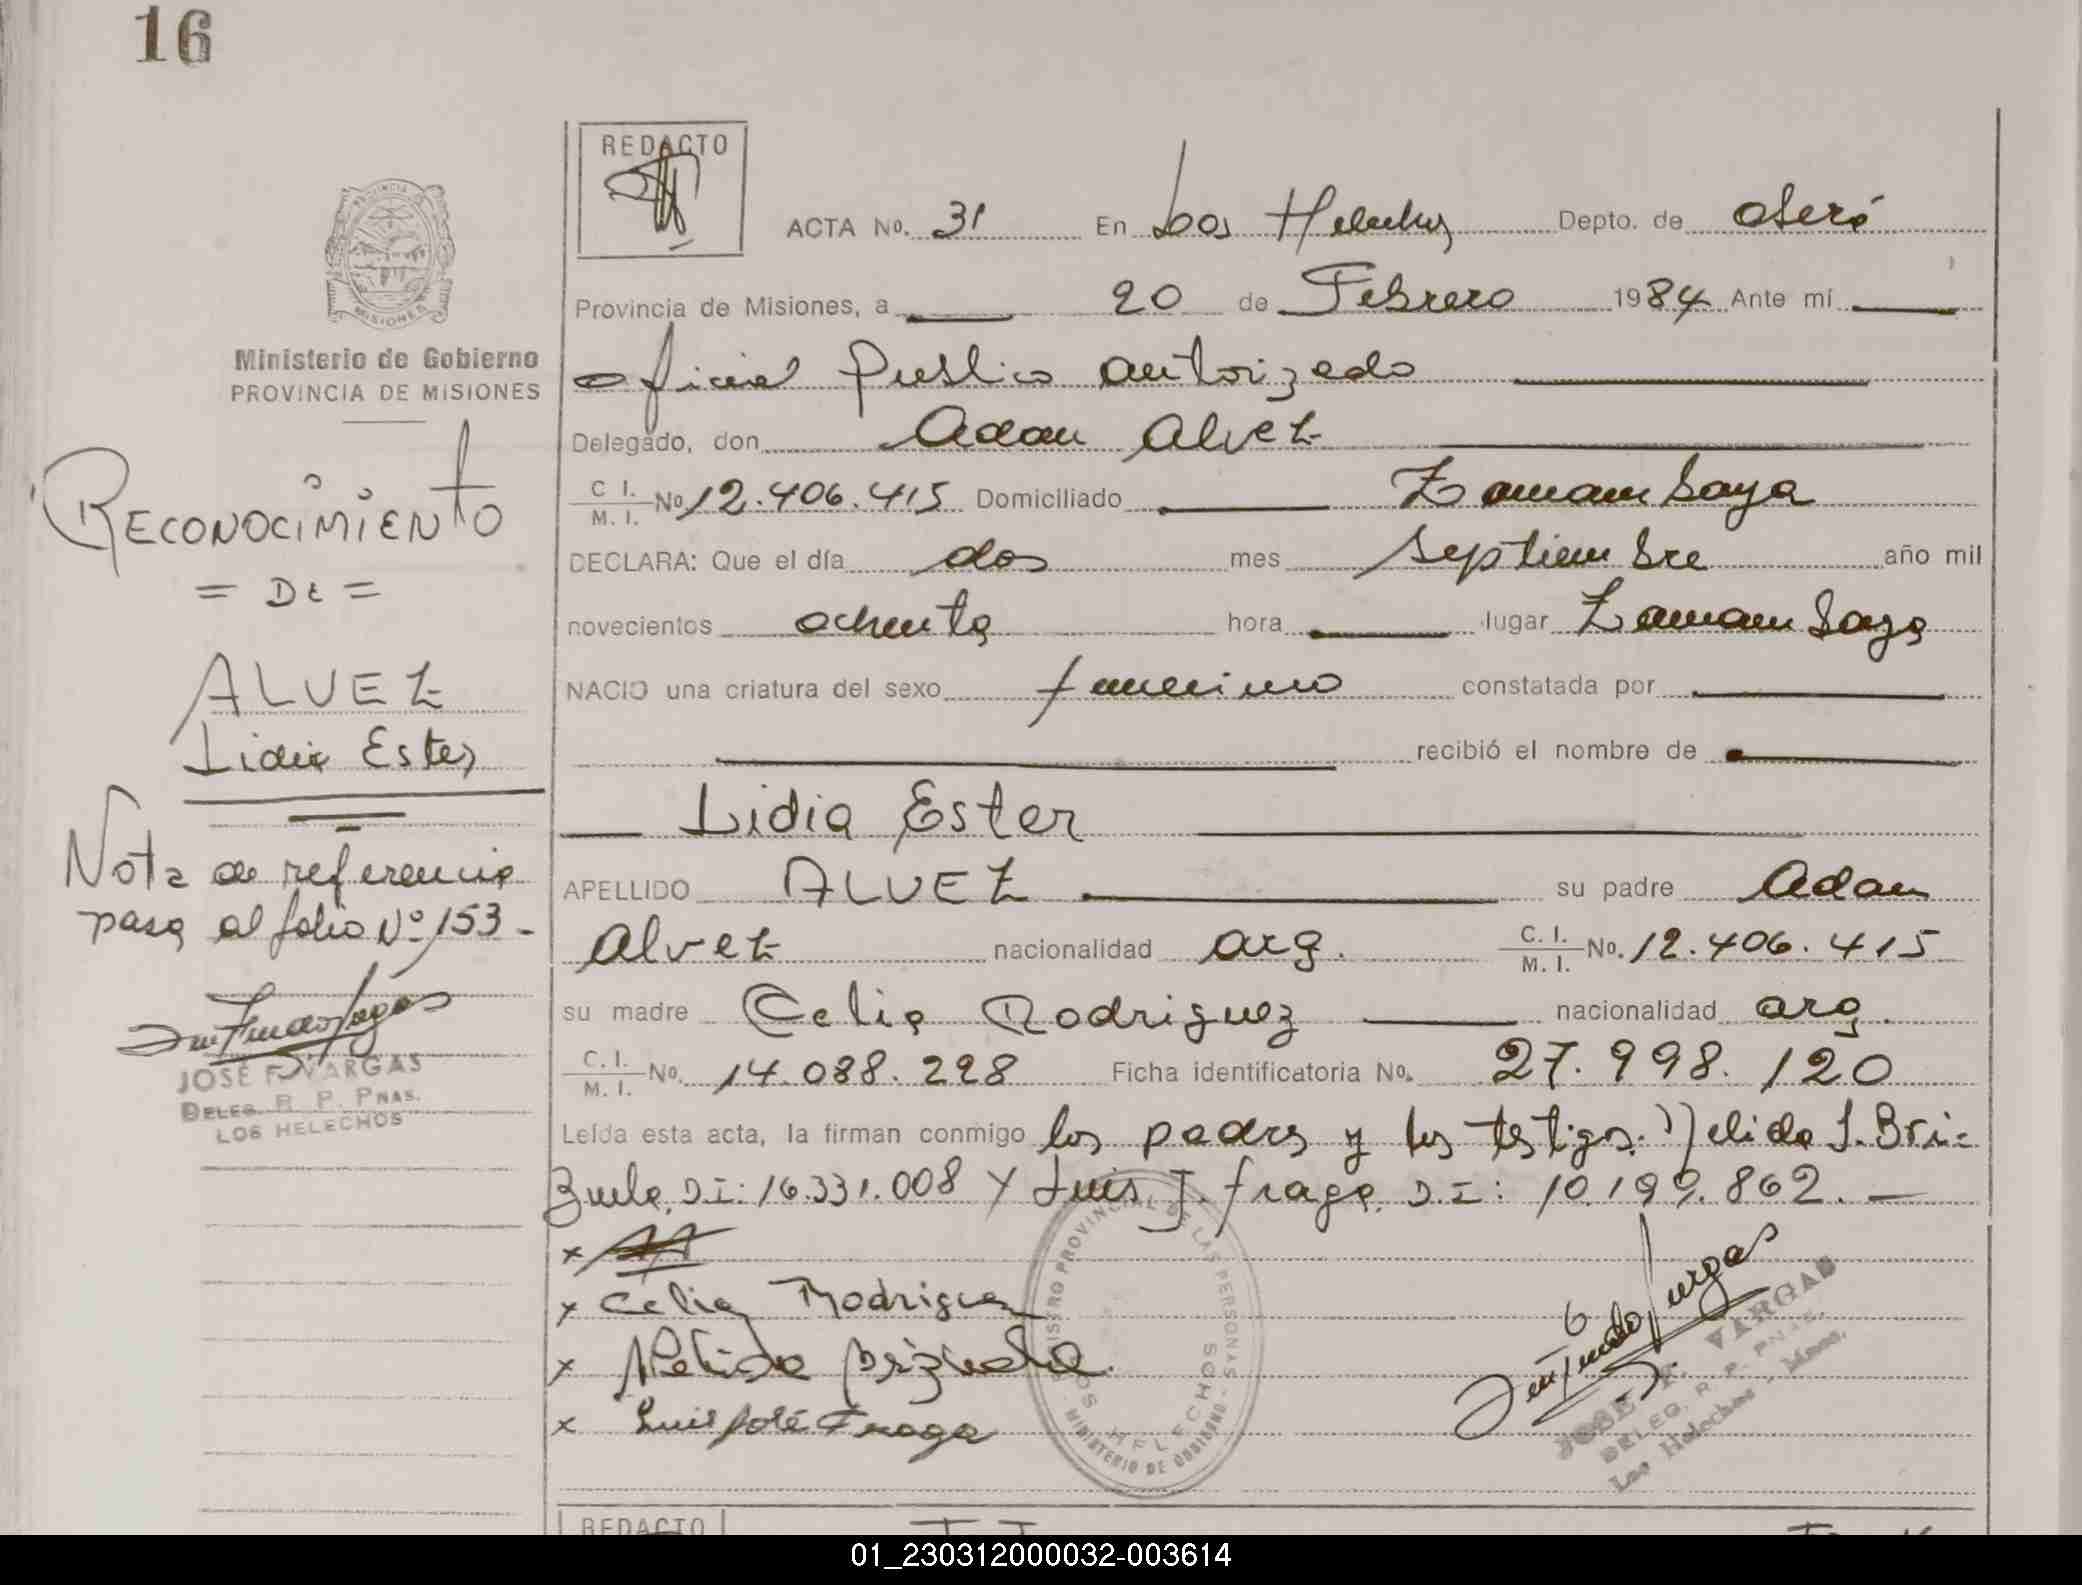 16
REDACTO
ACTA No. 31 En Los Helechos Depto. de Oberá
Provincia de Misiones, a 20 de Febrero 1984 Ante mí
Oficial Publico autorizado
Delegado, don Adan Alvez
C I. M. I. No 12.406.415 Domiciliado Zamambaya
DECLARA: Que el día dos mes Septiembre año mil
novecientos ochenta hora lugar Zamambaya
NACIO una criatura del sexo femenino constatada por
recibió el nombre de
Lidia Ester
APELLIDO ALVEZ su padre Adan
Alvez nacionalidad arg. C. I. M. I. No. 12.406.415
su madre Celia Rodriguez nacionalidad arg.
C. I. M. I. No. 14.088.228 Ficha identificatoria No. 27.998.120
Leída esta acta, la firman conmigo los padres y los testigos: Nelida S. Bri-
zuela, D.I: 16.331.008 Y Luis J. fraga. D.I: 10.199.862.
x
x Celia Rodriguez
x Nelida Brizuela
x Luis José Fraga
PROVINCIA
MISIONES
Ministerio de Gobierno
PROVINCIA DE MISIONES
RECONOCIMIENTO
= DE =
ALVEZ
Lidia Ester
Nota de referencia
pasa al folio Nº 153-
JOSE F. VARGAS
DELEG. R. P. PNAS.
LOS HELECHOS
REGISTRO PROVINCIAL DE LAS PERSONAS - MINISTERIO DE GOBIERNO -
LOS HELECHOS
JOSE F. VARGAS
DELEG. R. P. PNAS.
Los Helechos - Mnes.
REDACTO
01_230312000032-003614